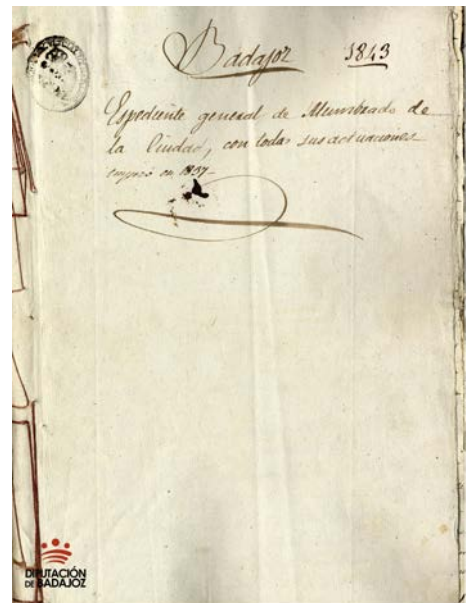 Badajoz 1843
Espediente general de Alumbrado de
la Ciudad, con todas sus actuaciones
empezó en 1837.
DIPUTACIÓN
DE BADAJOZ